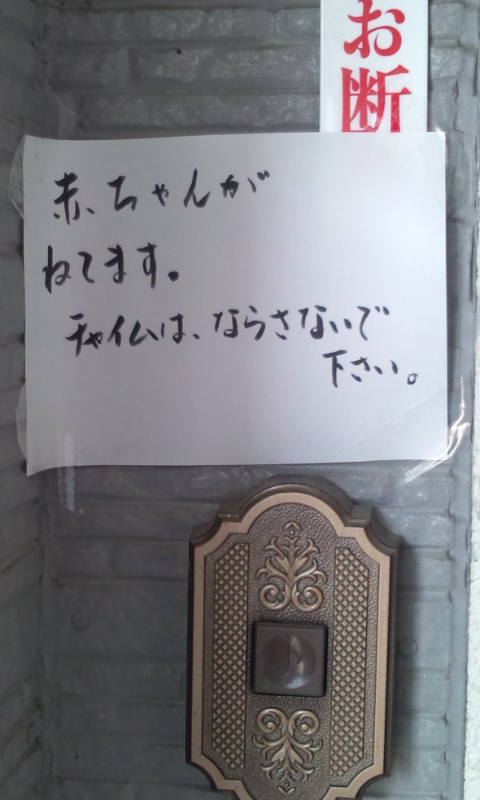 お断
赤ちゃんが
ねてます。
チャイムは、ならさないで
下さい。